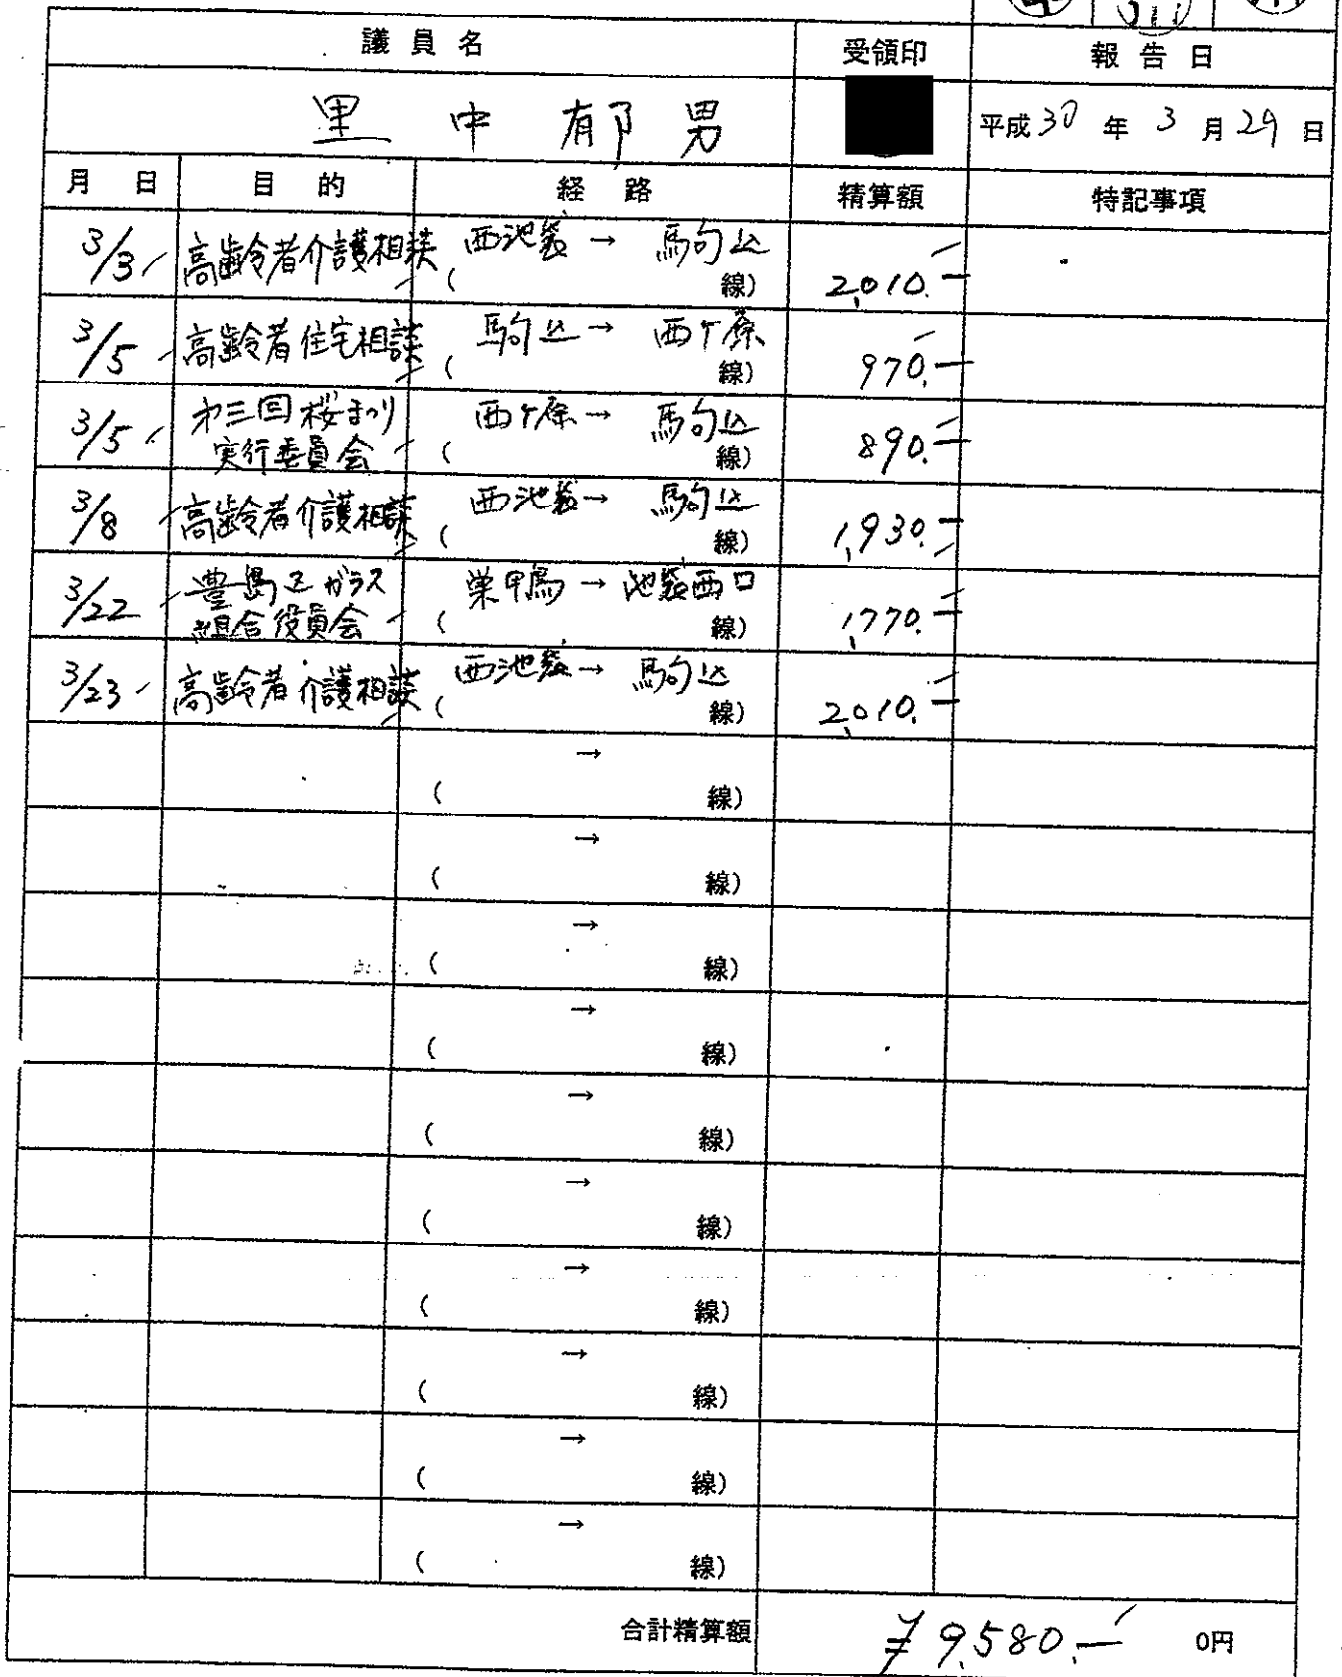 議員名 受領印 報告日
里中郁男 平成30年3月29日
月日 目的 経路 精算額 特記事項
3/3 高齢者介護相談 西池袋 → 駒込
( 線) 2,010.-
3/5 高齢者住宅相談 駒込 → 西ケ原
( 線) 970.-
3/5 才三回桜まつり 西ケ原 → 駒込
実行委員会 ( 線) 890.-
3/8 高齢者介護相談 西池袋 → 駒込
( 線) 1,930.-
3/22 豊島区ガラス 巣鴨 → 池袋西口
組合役員会 ( 線) 1,770.-
3/23 高齢者介護相談 西池袋 → 駒込
( 線) 2,010.-
→
( 線)
→
( 線)
→
( 線)
→
( 線)
→
( 線)
→
( 線)
→
( 線)
→
( 線)
→
( 線)
→
( 線)
合計精算額 ¥9,580.- 0円